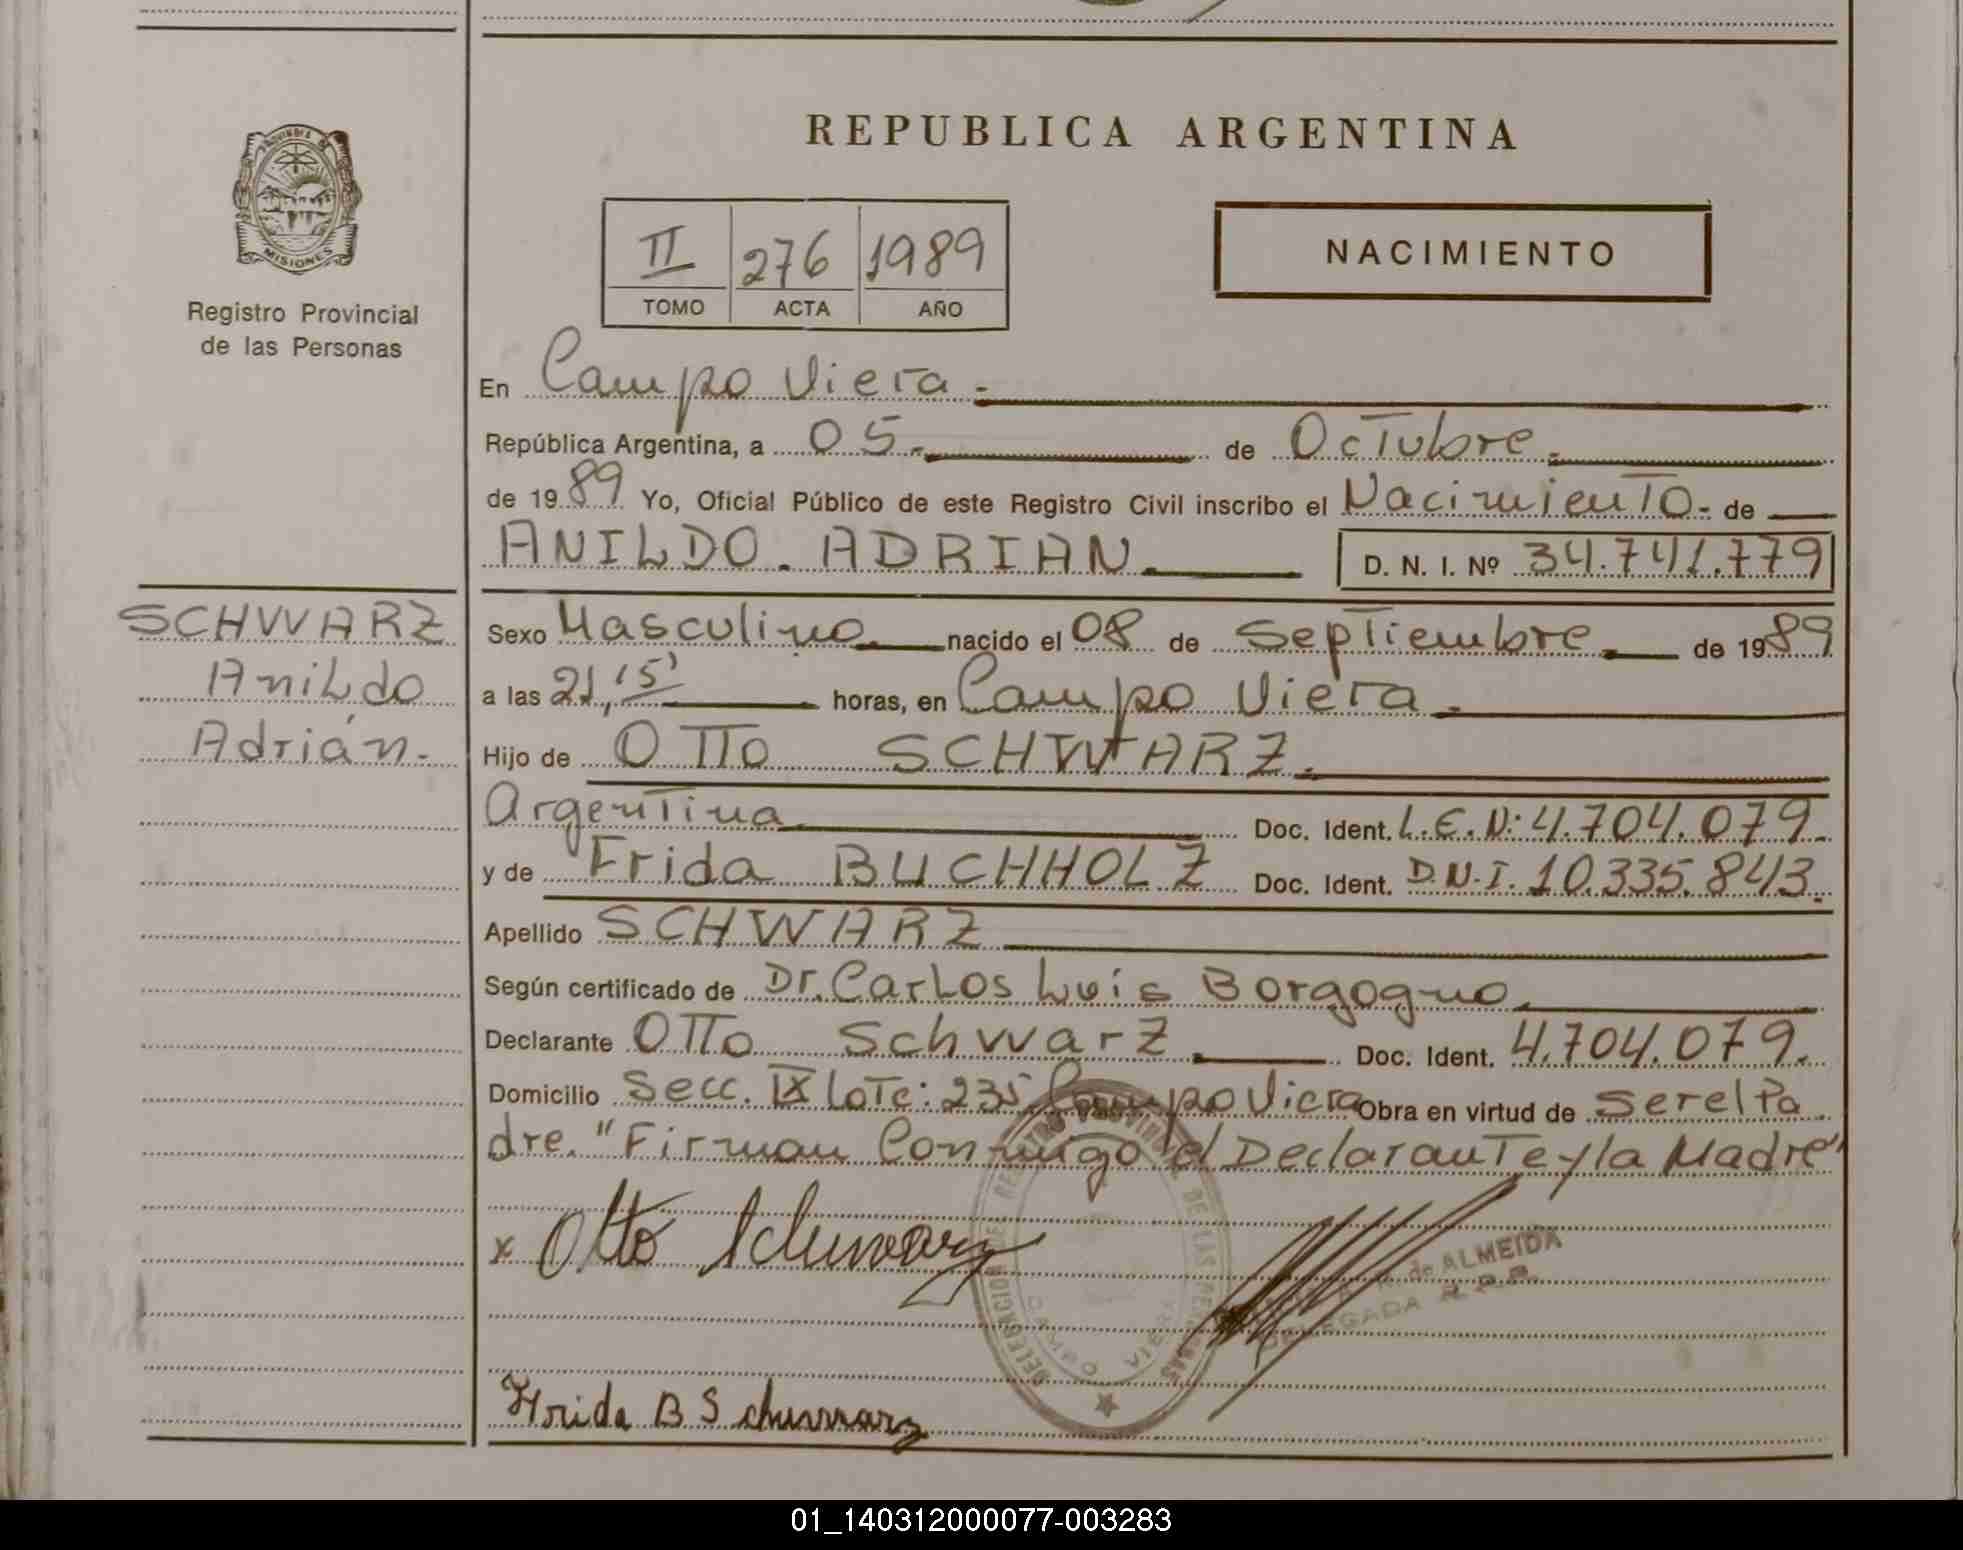 REPUBLICA ARGENTINA
PROVINCIA DE
MISIONES
Registro Provincial
de las Personas
II 276 1989
TOMO ACTA AÑO
NACIMIENTO
En Campo Viera.-
República Argentina, a 05.- de Octubre.
de 1989 Yo, Oficial Público de este Registro Civil inscribo el Nacimiento- de
ANILDO. ADRIAN. D. N. I. Nº 34.741.779
SCHWARZ
Anildo
Adrián.-
Sexo Masculino nacido el 08 de Septiembre. de 1989
a las 21,15' horas, en Campo Viera.
Hijo de OTTO SCHWARZ.
Argentina Doc. Ident. L.E.N: 4.704.079.
y de Frida BUCHHOLZ Doc. Ident. D.N.I. 10.335.843.
Apellido SCHWARZ
Según certificado de Dr. Carlos Luis Borgogno.
Declarante Otto Schwarz. Doc. Ident. 4.704.079.
Domicilio Secc. IX Lote: 235 Campo Viera Obra en virtud de ser el Pa
dre. "Firman Conmigo el Declarante y la Madre"
x Otto Schwarz
DELEGACION DEL REGISTRO PROVINCIAL DE LAS PERSONAS
CAMPO VIERA
de ALMEIDA
DELEGADA R. P. P.
Frida B Schwarz
01_140312000077-003283